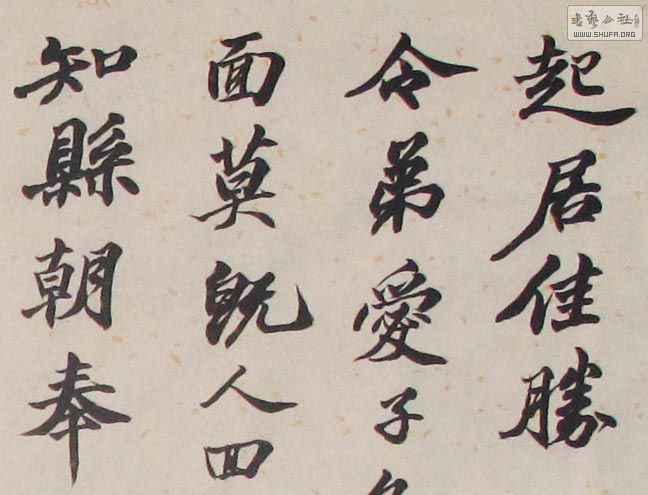 起居佳勝
令弟愛子
面莫既人四
知縣朝奉
書藝公社
WWW.SHUFA.ORG